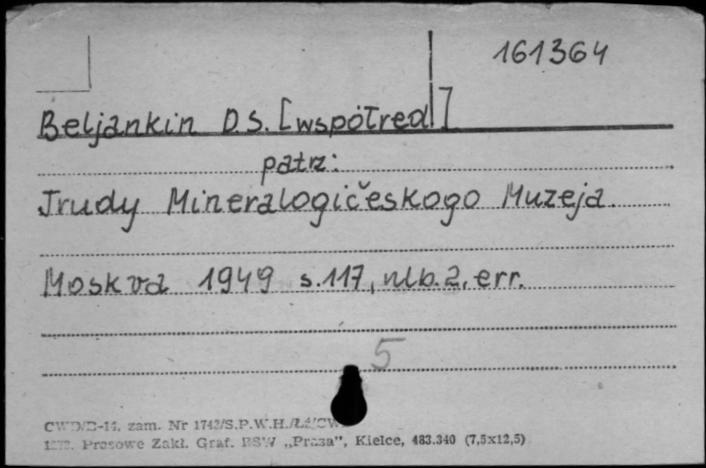 161364
Beljankin D.S. [współred]
patrz:
Trudy Mineralogičeskogo Muzeja.
Moskva 1949 s.117, nlb.2, err.
5
zam. Nr 1742/S.P.W.H./Ł
Prasowe Zakł. Graf. RSW „Prasa”, Kielce, 483.340 (7,5x12,5)